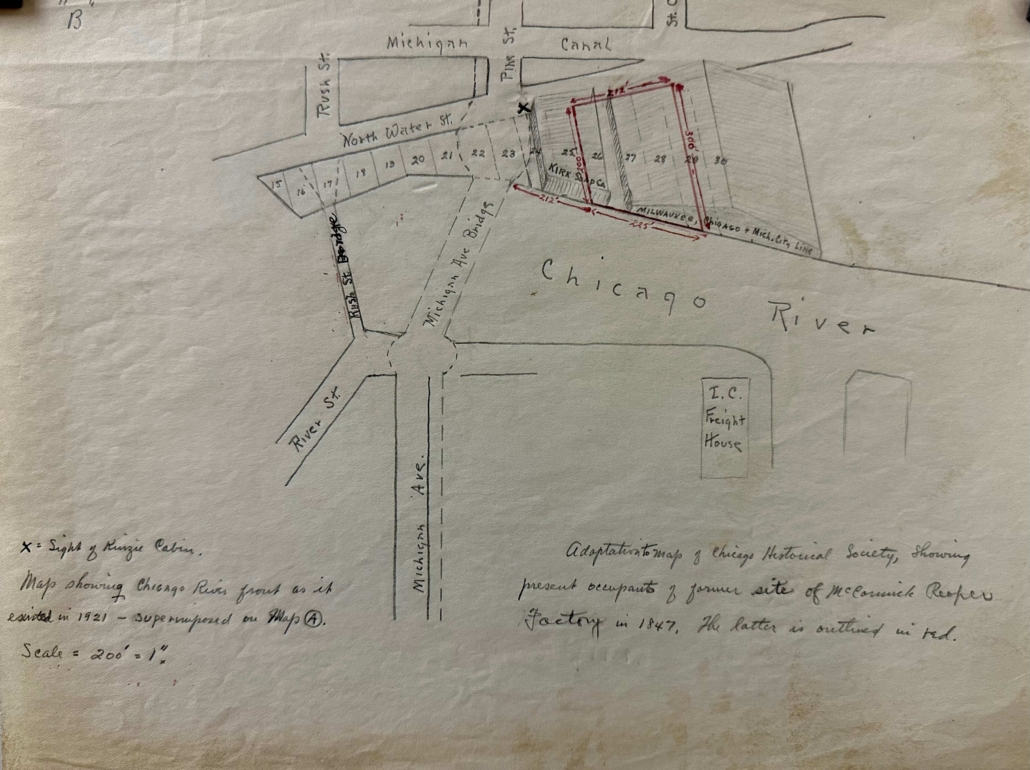 "B"
Michigan Canal
Pine St.
Rush St.
North Water St.
X
15 16 17 18 19 20 21 22 23 24 25 26 27 28 29 30
212'
300'
200'
KIRK SOAP Co
212'
225'
MILWAUKEE, CHICAGO + Mich. City LINE
Rush St Bridge
Michigan Ave Bridge
Chicago River
River St.
Michigan Ave.
I.C.
Freight
House
X = Sight of Kinzie Cabin.
Map showing Chicago River front as it
existed in 1921 - superimposed on Map A.
Scale = 200' = 1".
Adaptation to map of Chicago Historical Society, showing
present occupants of former site of McCormick Reaper
Factory in 1847. The latter is outlined in red.